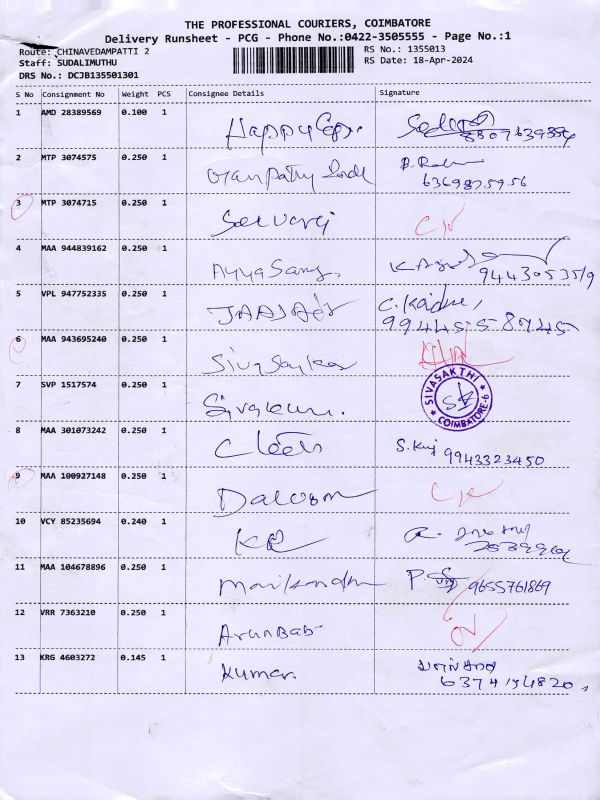 THE PROFESSIONAL COURIERS, COIMBATORE
Delivery Runsheet - PCG - Phone No.:0422-3505555 - Page No.:1
Route: CHINAVEDAMPATTI 2 RS No.: 1355013
Staff: SUDALIMUTHU RS Date: 18-Apr-2024
DRS No.: DCJB135501301
S No Consignment No Weight PCS Consignee Details Signature
1 AMD 28389569 0.100 1
2 MTP 3074575 0.250 1
6369875956
3 MTP 3074715 0.250 1 Selvaraj
4 MAA 944839162 0.250 1 Ayyasamy
9443053519
5 VPL 947752335 0.250 1
9944558745
6 MAA 943695240 0.250 1 Sivasankar
7 SVP 1517574 0.250 1 Sivakum. SIVASAKTHI COIMBATORE-6
8 MAA 301073242 0.250 1 9943323450
9 MAA 100927148 0.250 1
10 VCY 85235694 0.240 1 KR
11 MAA 104678896 0.250 1 Manikandan 9655761869
12 VRR 7363210 0.250 1 ArunBab
13 KRG 4603272 0.145 1 Kumar.
6374154820